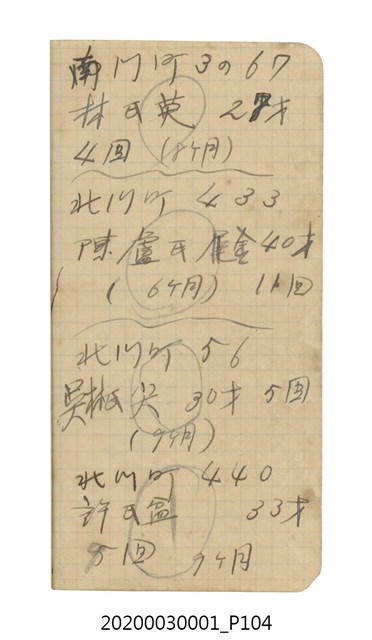 南川町 3の67
林氏英 27才
4回 (8ケ月)
北川町 433
陳盧氏 金 40才
(6ケ月) 11回
北川町 56
吳林氏尖 30才 5回
(9ケ月)
北川町 440
許氏盆 33才
5回 9ケ月
20200030001_P104